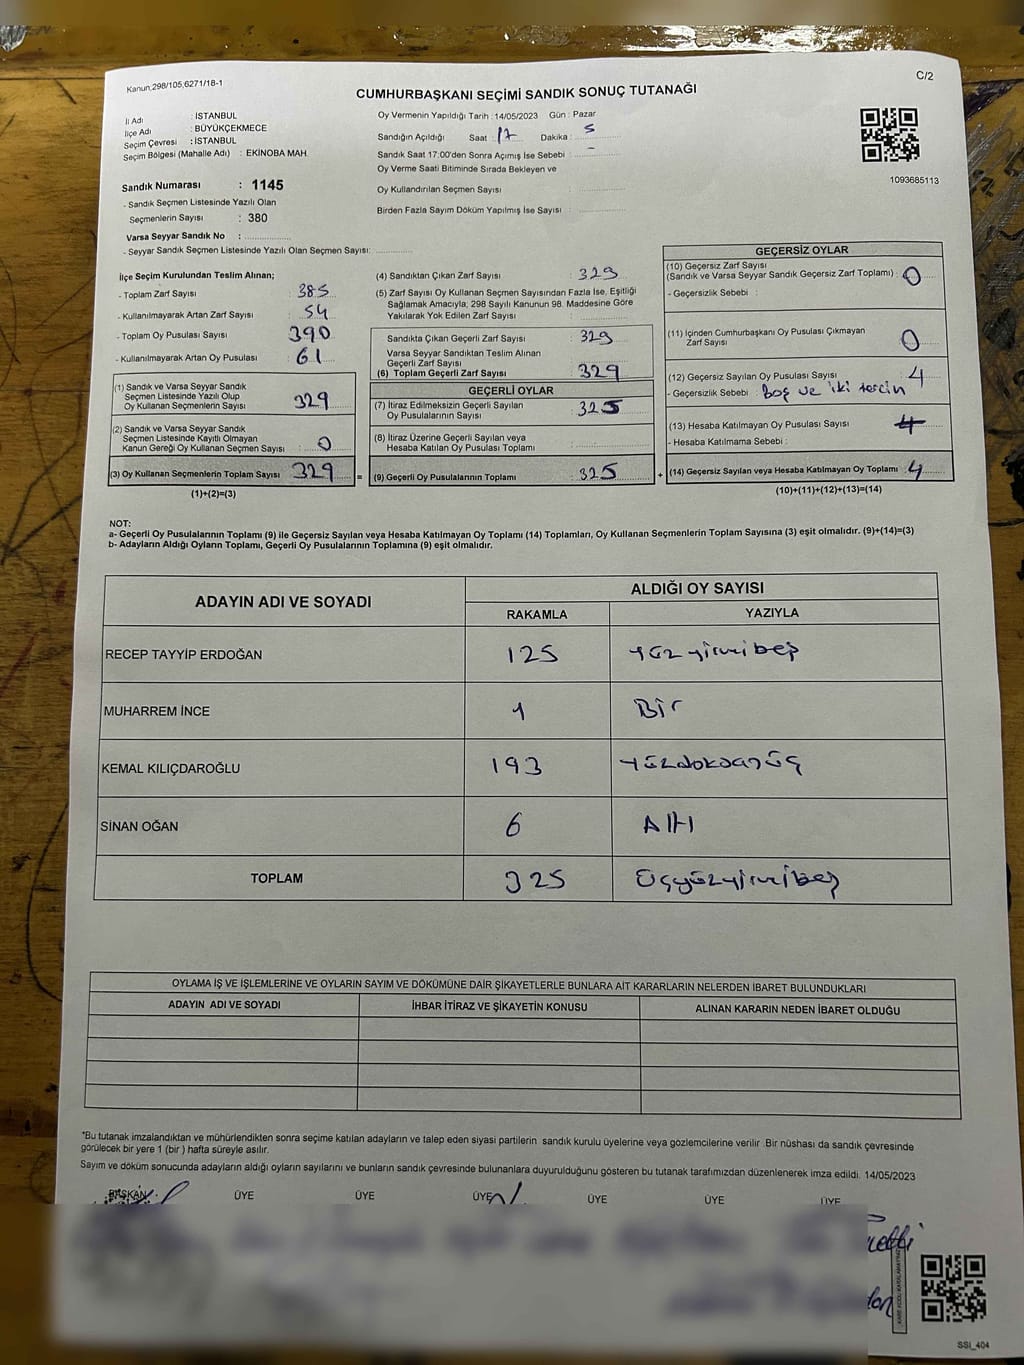 Kanun,298/105,6271/18-1
C/2
CUMHURBAŞKANI SEÇİMİ SANDIK SONUÇ TUTANAĞI
İl Adı : İSTANBUL
İlçe Adı : BÜYÜKÇEKMECE
Seçim Çevresi : İSTANBUL
Seçim Bölgesi (Mahalle Adı) : EKİNOBA MAH.
Sandık Numarası : 1145
- Sandık Seçmen Listesinde Yazılı Olan
Seçmenlerin Sayısı : 380
Varsa Seyyar Sandık No :
- Seyyar Sandık Seçmen Listesinde Yazılı Olan Seçmen Sayısı:
Oy Vermenin Yapıldığı Tarih : 14/05/2023 Gün : Pazar
Sandığın Açıldığı Saat : 17 Dakika : 5
Sandık Saat 17:00'den Sonra Açımış İse Sebebi : -
Oy Verme Saati Bitiminde Sırada Bekleyen ve
Oy Kullandırılan Seçmen Sayısı :
Birden Fazla Sayım Döküm Yapılmış İse Sayısı :
1093685113
İlçe Seçim Kurulundan Teslim Alınan;
- Toplam Zarf Sayısı : 385
- Kullanılmayarak Artan Zarf Sayısı : 54
- Toplam Oy Pusulası Sayısı : 390
- Kullanılmayarak Artan Oy Pusulası : 61
(1) Sandık ve Varsa Seyyar Sandık
Seçmen Listesinde Yazılı Olup
Oy Kullanan Seçmenlerin Sayısı : 329
(2) Sandık ve Varsa Seyyar Sandık
Seçmen Listesinde Kayıtlı Olmayan
Kanun Gereği Oy Kullanan Seçmen Sayısı : 0
(3) Oy Kullanan Seçmenlerin Toplam Sayısı : 329
(1)+(2)=(3)
=
(4) Sandıktan Çıkan Zarf Sayısı : 329
(5) Zarf Sayısı Oy Kullanan Seçmen Sayısından Fazla İse, Eşitliği
Sağlamak Amacıyla; 298 Sayılı Kanunun 98. Maddesine Göre
Yakılarak Yok Edilen Zarf Sayısı :
Sandıkta Çıkan Geçerli Zarf Sayısı : 329
Varsa Seyyar Sandıktan Teslim Alınan
Geçerli Zarf Sayısı :
(6) Toplam Geçerli Zarf Sayısı : 329
GEÇERLİ OYLAR
(7) İtiraz Edilmeksizin Geçerli Sayılan
Oy Pusulalarının Sayısı : 325
(8) İtiraz Üzerine Geçerli Sayılan veya
Hesaba Katılan Oy Pusulası Toplamı :
(9) Geçerli Oy Pusulalarının Toplamı : 325
+
GEÇERSİZ OYLAR
(10) Geçersiz Zarf Sayısı
(Sandık ve Varsa Seyyar Sandık Geçersiz Zarf Toplamı) : 0
- Geçersizlik Sebebi :
(11) İçinden Cumhurbaşkanı Oy Pusulası Çıkmayan
Zarf Sayısı : 0
(12) Geçersiz Sayılan Oy Pusulası Sayısı : 4
- Geçersizlik Sebebi : Boş ve iki tercin
(13) Hesaba Katılmayan Oy Pusulası Sayısı : 4
- Hesaba Katılmama Sebebi :
(14) Geçersiz Sayılan veya Hesaba Katılmayan Oy Toplamı : 4
(10)+(11)+(12)+(13)=(14)
NOT:
a- Geçerli Oy Pusulalarının Toplamı (9) ile Geçersiz Sayılan veya Hesaba Katılmayan Oy Toplamı (14) Toplamları, Oy Kullanan Seçmenlerin Toplam Sayısına (3) eşit olmalıdır. (9)+(14)=(3)
b- Adayların Aldığı Oyların Toplamı, Geçerli Oy Pusulalarının Toplamına (9) eşit olmalıdır.
ADAYIN ADI VE SOYADI ALDIĞI OY SAYISI
RAKAMLA YAZIYLA
RECEP TAYYİP ERDOĞAN 125 yüzyirmibeş
MUHARREM İNCE 1 Bir
KEMAL KILIÇDAROĞLU 193 yüzdoksanüç
SİNAN OĞAN 6 Altı
TOPLAM 325 üçyüzyirmibeş
OYLAMA İŞ VE İŞLEMLERİNE VE OYLARIN SAYIM VE DÖKÜMÜNE DAİR ŞİKAYETLERLE BUNLARA AİT KARARLARIN NELERDEN İBARET BULUNDUKLARI
ADAYIN ADI VE SOYADI İHBAR İTİRAZ VE ŞİKAYETİN KONUSU ALINAN KARARIN NEDEN İBARET OLDUĞU
*Bu tutanak imzalandıktan ve mühürlendikten sonra seçime katılan adayların ve talep eden siyasi partilerin sandık kurulu üyelerine veya gözlemcilerine verilir .Bir nüshası da sandık çevresinde
görülecek bir yere 1 (bir ) hafta süreyle asılır.
Sayım ve döküm sonucunda adayların aldığı oyların sayılarını ve bunların sandık çevresinde bulunanlara duyurulduğunu gösteren bu tutanak tarafımızdan düzenlenerek imza edildi. 14/05/2023
BAŞKAN ÜYE ÜYE ÜYE ÜYE ÜYE ÜYE
SSI_404